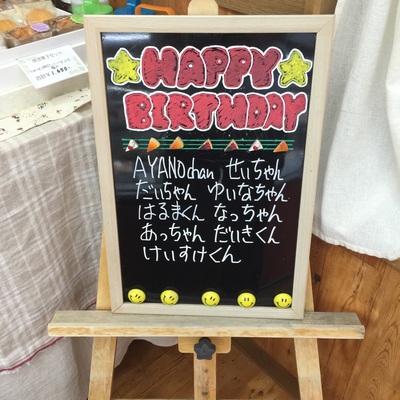 HAPPY
BIRTHDAY
AYANOchan せいちゃん
だいちゃん ゆいなちゃん
はるまくん なっちゃん
あっちゃん だいきくん
けいすけくん